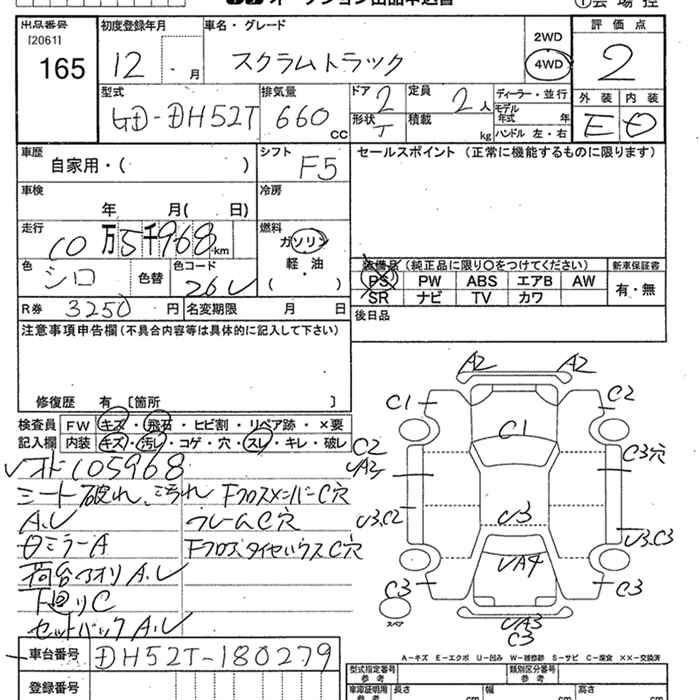 オークション出品申込書
①会場控
出品番号
[2061]
165
初度登録年月
12 ・ 月
車名・グレード
スクラムトラック
2WD
4WD
評価点
2
型式
GD-DH52T
排気量
660 CC
ドア 2
形状 T
定員 2人
積載 kg
ディーラー・並行
モデル年式 年
ハンドル 左・右
外装 内装
E D
車歴
自家用・( )
シフト
F5
セールスポイント (正常に機能するものに限ります)
車検
年 月( 日)
冷房
走行
10万5千968km
燃料
ガソリン
軽・油
( )
色
シロ
色替
色コード
26U
装備品(純正品に限り○をつけてください)
新車保証書
PS PW ABS エアB AW
SR ナビ TV カワ
有・無
R券 3250 円
名変期限 月 日
後日品
注意事項申告欄(不具合内容等は具体的に記入して下さい)
修復歴 有 [箇所 ]
検査員 FW キズ・飛石・ヒビ割・リペア跡・×要
記入欄 内装 キズ・汚レ・コゲ・穴・スレ・キレ・破レ
105968
シート破れ、汚れ FクロスメンバーC穴
A.U フレームC穴
日ミラーA FクロスタイヤハウスC穴
荷台アオリA.U
下回りC
セットバックA.U
A2 A2
C1 C2
C1
C2 C3穴
UA3
U3
U3.C2 U3.C3
UA4
C3 C3
スペア
UA3
C3
A−キズ E−エクボ U−凹み W−補修跡 S−サビ C−腐食 ××−交換済
車台番号 DH52T-180279
登録番号
型式指定番号
参考
類別区分番号
参考
車庫証明用
参考
長さ cm 幅 cm 高さ cm